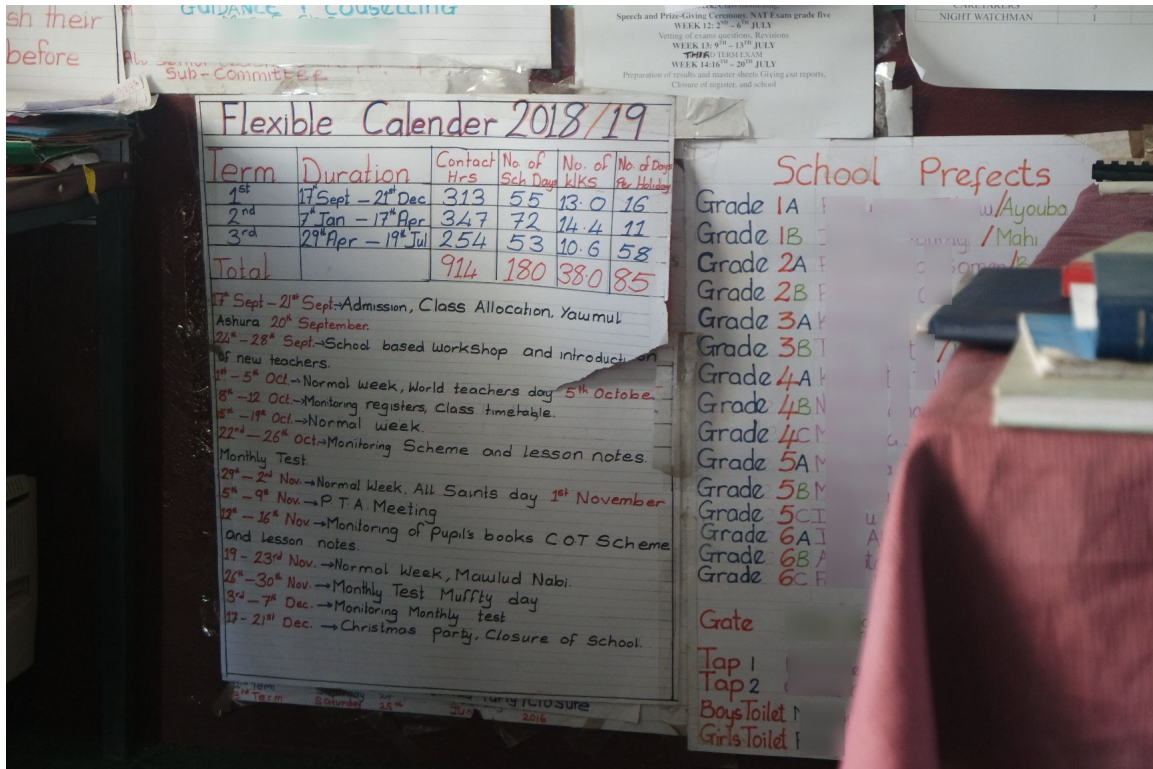 sh their
before
GUIDANCE & COUSELLING
Sub-Committee
Speech and Prize-Giving Ceremony, NAT Exam grade five
WEEK 12: 2ND – 6TH JULY
Vetting of exams questions, Revisions
WEEK 13: 9TH – 13TH JULY
THIRD TERM EXAM
WEEK 14:16TH – 20TH JULY
Preparation of results and master sheets Giving out reports,
Closure of register, and school
NIGHT WATCHMAN 1
Flexible Calender 2018/19
Term Duration Contact Hrs No. of Sch Days No. of Wks No. of Days Per Holiday
1st 17th Sept – 21st Dec 313 55 13.0 16
2nd 7th Jan – 17th Apr 347 72 14.4 11
3rd 29th Apr – 19th Jul 254 53 10.6 58
Total 914 180 38.0 85
17th Sept – 21st Sept→Admission, Class Allocation. Yawmul
Ashura 20th September.
24th – 28th Sept.→School based workshop and introduction
of new teachers.
1st – 5th Oct.→Normal week, World teachers day 5th Octobe
8th – 12 Oct.→Monitoring registers, Class timetable.
15th – 19th Oct.→Normal week.
22nd – 26th Oct→Monitoring Scheme and lesson notes.
Monthly Test.
29th – 2nd Nov.→Normal Week, All Saints day 1st November
5th – 9th Nov.→P.T.A. Meeting
12th – 16th Nov→Monitoring of Pupil's books COT Scheme
and Lesson notes.
19 – 23rd Nov.→Normal Week, Mawlud Nabi.
26th – 30th Nov.→Monthly Test Muffty day
3rd – 7th Dec.→Monitoring Monthly test
17 – 21st Dec.→Christmas Party, Closure of School.
3rd Term Saturday 25th 2016
School Prefects
Grade 1A /Ayouba
Grade 1B /Mahi
Grade 2A
Grade 2B
Grade 3A
Grade 3B
Grade 4A
Grade 4B
Grade 4C
Grade 5A
Grade 5B
Grade 5C
Grade 6A
Grade 6B
Grade 6C
Gate
Tap 1
Tap 2
Boys Toilet
Girls Toilet